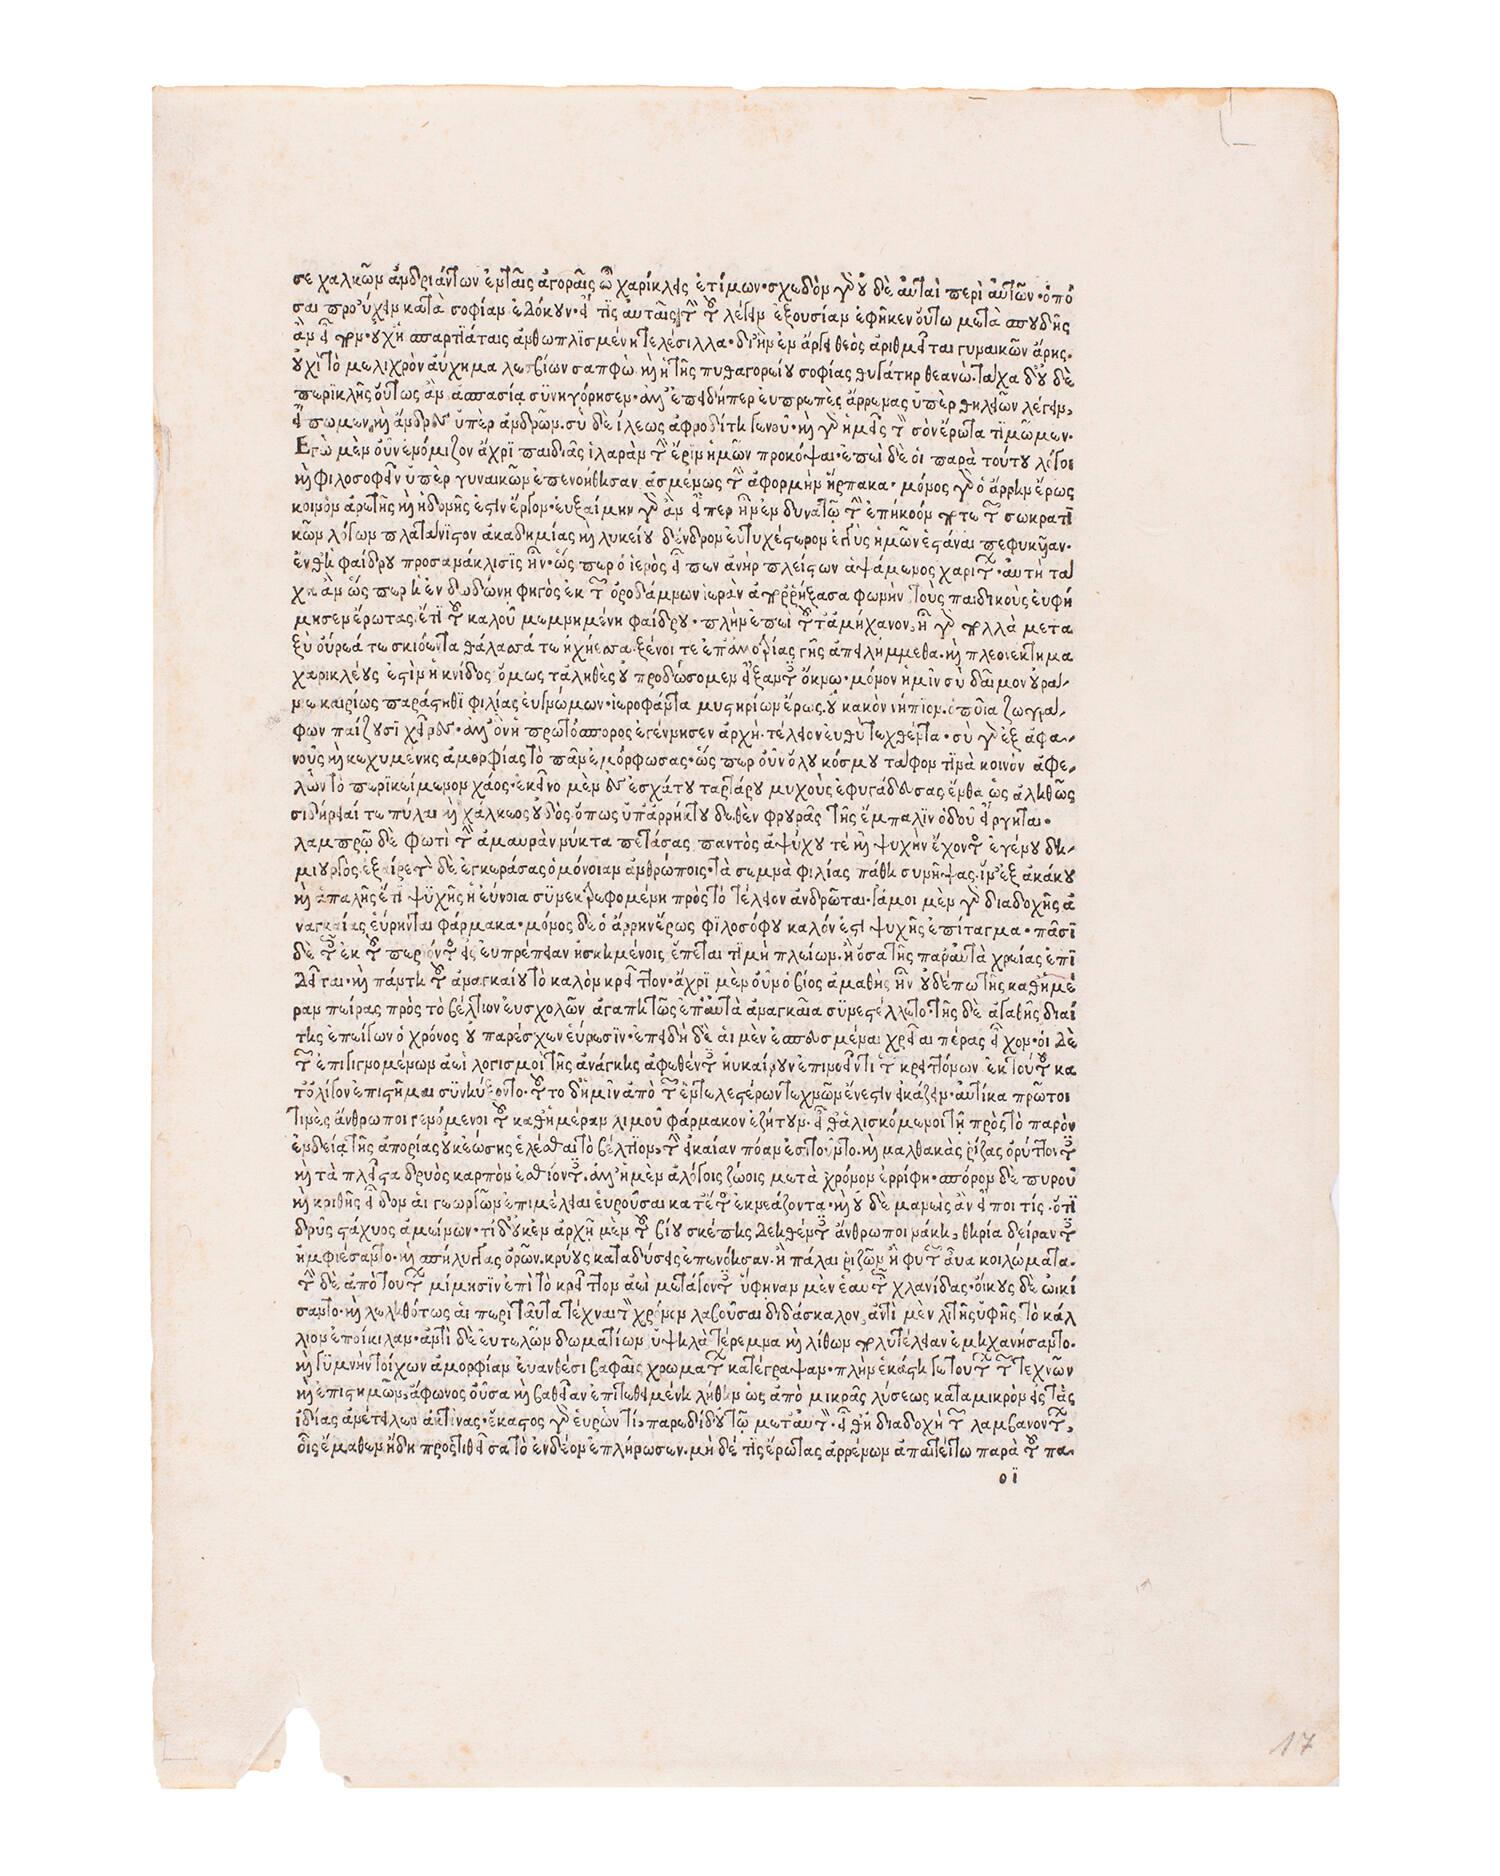 σε χαλκῶν ἀνδριάντων ἐν ταῖς ἀγοραῖς ὦ χαρίκλεις ἐτίμων· σχεδὸν γὰρ οὐδὲ αὐταὶ περὶ αὐτῶν· ὁπό
σαι προὔχειν κατὰ σοφίαν ἐδόκουν· εἴ τις αὐταῖς τὴν τοῦ λέγειν ἐξουσίαν ἐφῆκεν οὕτω μετὰ σπουδῆς
ἂν εἶπον· οὐχ ἡ σπαρτιάταις ἀνθωπλισμένη τελέσιλλα· δι' ἣν ἐν ἄργει θεὸς ἀριθμεῖται γυναικῶν ἄρης·
οὐχὶ τὸ μελιχρὸν αὔχημα λεσβίων σαπφὼ καὶ ἡ τῆς πυθαγορείου σοφίας θυγάτηρ θεανώ. τάχα δ' οὐδὲ
περικλῆς οὕτως ἂν ἀσπασίᾳ συνηγόρησεν· ἀλλ' ἐπειδήπερ εὐπρεπὲς ἄρρενας ὑπὲρ θηλειῶν λέγειν,
εἴπωμεν καὶ ἄνδρες ὑπὲρ ἀνδρῶν. σὺ δὲ ἵλεως ἀφροδίτη γενοῦ· καὶ γὰρ ἡμεῖς τὸν σὸν ἔρωτα τιμῶμεν.
Ἐγὼ μὲν οὖν ἐνόμιζον ἄχρι παιδιᾶς ἱλαρὰν τὴν ἔριν ἡμῶν προκόψαι· ἐπεὶ δὲ οἱ παρὰ τούτου λόγοι
καὶ φιλοσοφεῖν ὑπὲρ γυναικῶν ἐπενοήθησαν ἀσμένως τὴν ἀφορμὴν ἥρπακα· μόνος γὰρ ὁ ἄρρην ἔρως
κοινὸν ἀρετῆς καὶ ἡδονῆς ἐστὶν ἔργον· εὐξαίμην γὰρ ἂν εἴπερ ἦν ἐν δυνατῷ τὴν ἐπήκοόν ποτε τῶν σωκρατι
κῶν λόγων πλατάνιστον ἀκαδημίας καὶ λυκείου δένδρον εὐτυχέστερον ἐγγὺς ἡμῶν ἑστάναι πεφυκῦαν·
ἔνθη φαίδρου προσανάκλισις ἦν· ὥσπερ ὁ ἱερὸς εἶπεν ἀνὴρ πλείστων ἁψάμενος χαρίτων· αὐτὴ τά
χα ἂν ὥσπερ ἡ ἐν δωδώνῃ φηγὸς ἐκ τῶν ὀροδάμνων ἱερὰν ἀπορρήξασα φωνὴν τοὺς παιδικοὺς εὐφή
μησεν ἔρωτας ἔτι τοῦ καλοῦ μεμνημένη φαίδρου· πλὴν ἐπεὶ τοῦτ' ἀμήχανον, ἦ γὰρ πολλὰ μετα
ξὺ οὔρεά τε σκιόεντα θάλασσά τε ἠχήεσσα. ξένοι τε ἐπ' ἀλλοτρίας γῆς ἀπειλήμμεθα. καὶ πλεονέκτημα
χαρικλέους ἐστὶν ἡ κνίδος· ὅμως τἀληθὲς οὐ προδώσομεν εἴξαντες ὄκνῳ· μόνον ἡμῖν σὺ δαῖμον οὐρά-
νιε καιρίως παράστηθι φιλίας εὐγνώμων· ἱεροφάντα μυστηρίων ἔρως. οὐ κακὸν νήπιον. ὁποῖα ζωγρά-
φων παίζουσι χεῖρες· ἀλλ' ὃν ἡ πρωτόσπορος ἐγέννησεν ἀρχὴ· τέλειον εὐθὺ τεχθέντα· σὺ γὰρ ἐξ ἀφα-
νοῦς καὶ κεχυμένης ἀμορφίας τὸ πᾶν ἐμόρφωσας· ὥσπερ οὖν ὅλου κόσμου τάφον τινὰ κοινὸν ἀφε-
λὼν τὸ περικείμενον χάος· ἐκεῖνο μὲν ἐς ἐσχάτου ταρτάρου μυχοὺς ἐφυγάδευσας. ἔνθα ὡς ἀληθῶς
σιδήρειαί τε πύλαι καὶ χάλκεος οὐδός, ὅπως ὑπ' ἀρρήκτου δεθὲν φρουρᾶς τῆς ἔμπαλιν ὁδοῦ εἴργηται·
λαμπρῷ δὲ φωτὶ τὴν ἀμαυρὰν νύκτα πετάσας παντὸς ἀψύχου τέ καὶ ψυχὴν ἔχοντος ἐγένου δη-
μιουργός· ἐξαίρετον δὲ ἐγκεράσας ὁμόνοιαν ἀνθρώποις· τὰ σεμνὰ φιλίας πάθη συνῆψας. ἵν' ἐξ ἀκάκου
καὶ ἁπαλῆς ἔτι ψυχῆς ἡ εὔνοια συνεκτρεφομένη πρὸς τὸ τέλειον ἀνδρῶται. γάμοι μὲν γὰρ διαδοχῆς ἀ
ναγκαίας εὕρηνται φάρμακα· μόνος δὲ ὁ ἄρρην ἔρως φιλοσόφου καλόν ἐστι ψυχῆς ἐπίταγμα· πᾶσι
δὲ τοῖς ἐκ τοῦ περιόντος εἰς εὐπρέπειαν ἠσκημένοις ἕπεται τιμὴ πλείων. ἢ ὅσα τῆς παρ' αὐτὰ χρείας ἐπι
δεῖται· καὶ πάντη τοῦ ἀναγκαίου τὸ καλὸν κρεῖττον· ἄχρι μὲν οὖν ὁ βίος ἀμαθὴς ἦν οὐδέπω τῆς καθ' ἡμέ
ραν πείρας πρὸς τὸ βέλτιον εὐσχολῶν ἀγαπητῶς ἐπ' αὐτὰ ἀναγκαῖα συνεστέλλετο· τῆς δὲ ἀγαθῆς διαί
της ἐπείγων ὁ χρόνος οὐ παρέσχεν εὕρεσιν· ἐπειδὴ δὲ αἱ μὲν ἐσπευσμέναι χρεῖαι πέρας εἶχον· οἱ δὲ
τῶν ἐπιγιγνομένων ἀεὶ λογισμοὶ τῆς ἀνάγκης ἀφεθέντες ηὐκαίρουν ἐπινοεῖν τι τῶν κρειττόνων ἐκ τούτου κα
τ' ὀλίγον ἐπιστῆμαι συνηύξοντο· τοῦτο δ' ἡμῖν ἀπὸ τῶν ἐντελεστέρων τεχνῶν ἔνεστιν εἰκάζειν· αὐτίκα πρῶτοι
τινὲς ἄνθρωποι γενόμενοι τοῦ καθ' ἡμέραν λιμοῦ φάρμακον ἐζήτουν· εἶθ' ἁλισκόμενοι τῇ πρὸς τὸ παρὸν
ἐνδείᾳ τῆς ἀπορίας οὐκ ἐώσης ἑλέσθαι τὸ βέλτιον, τὴν εἰκαίαν πόαν ἐσιτοῦντο. καὶ μαλθακὰς ῥίζας ὀρύττοντες
καὶ τὰ πλεῖστα δρυὸς καρπὸν ἐσθίοντες. ἀλλ' ἡ μὲν ἀλόγοις ζώοις μετὰ χρόνον ἐρρίφη· σπόρον δὲ πυροῦ
καὶ κριθῆς εἶδον αἱ γεωργῶν ἐπιμέλειαι εὑροῦσαι κατ' ἔτος ἐκνεάζοντα· καὶ οὐδὲ μανεὶς ἂν εἴποι τίς· ὅτι
δρῦς στάχυος ἀμείνων· τί δ' οὐκ ἐν ἀρχῇ μὲν τοῦ βίου σκέπης δεηθέντες ἄνθρωποι νάκη, θηρία δείραντες
ἠμφιέσαντο· καὶ σπήλυγγας ὀρῶν. κρύους καταδύσεις ἐπενόησαν. ἢ πάλαι ῥιζῶν ἢ φυτῶν αὖα κοιλώματα·
τὴν δὲ ἀπὸ τούτων μίμησιν ἐπὶ τὸ κρεῖττον ἀεὶ μετάγοντες ὕφηναν μὲν ἑαυτοῖς χλανίδας· οἴκους δὲ ᾠκί
σαντο· καὶ λεληθότως αἱ περὶ ταῦτα τέχναι τὸν χρόνον λαβοῦσαι διδάσκαλον, ἀντὶ μὲν λιτῆς ὑφῆς τὸ κάλ
λιον ἐποίκιλαν· ἀντὶ δὲ εὐτελῶν δωματίων ὑψηλὰ τέρεμνα καὶ λίθων πολυτέλειαν ἐμηχανήσαντο·
καὶ γυμνὴν τοίχων ἀμορφίαν εὐανθέσι βαφαῖς χρωμάτων κατέγραψαν· πλὴν ἑκάστη γε τούτων τῶν τεχνῶν
καὶ ἐπιστημῶν, ἄφωνος οὖσα καὶ βαθεῖαν ἐπιτεθειμένη λήθην ὡς ἀπὸ μικρᾶς λύσεως κατὰ μικρὸν εἰς τὰς
ἰδίας ἀνέτειλεν ἀκτῖνας· ἕκαστος γὰρ εὑρὼν τί, παρεδίδου τῷ μετ' αὐτόν· εἶθ' ἡ διαδοχὴ τῶν λαμβανόντων,
οἷς ἔμαθεν ἤδη προστιθεῖσα τὸ ἐνδέον ἐπλήρωσεν. μὴ δέ τις ἔρωτας ἀρρένων ἀπαιτείτω παρὰ τοῦ πα-
οϊ
17